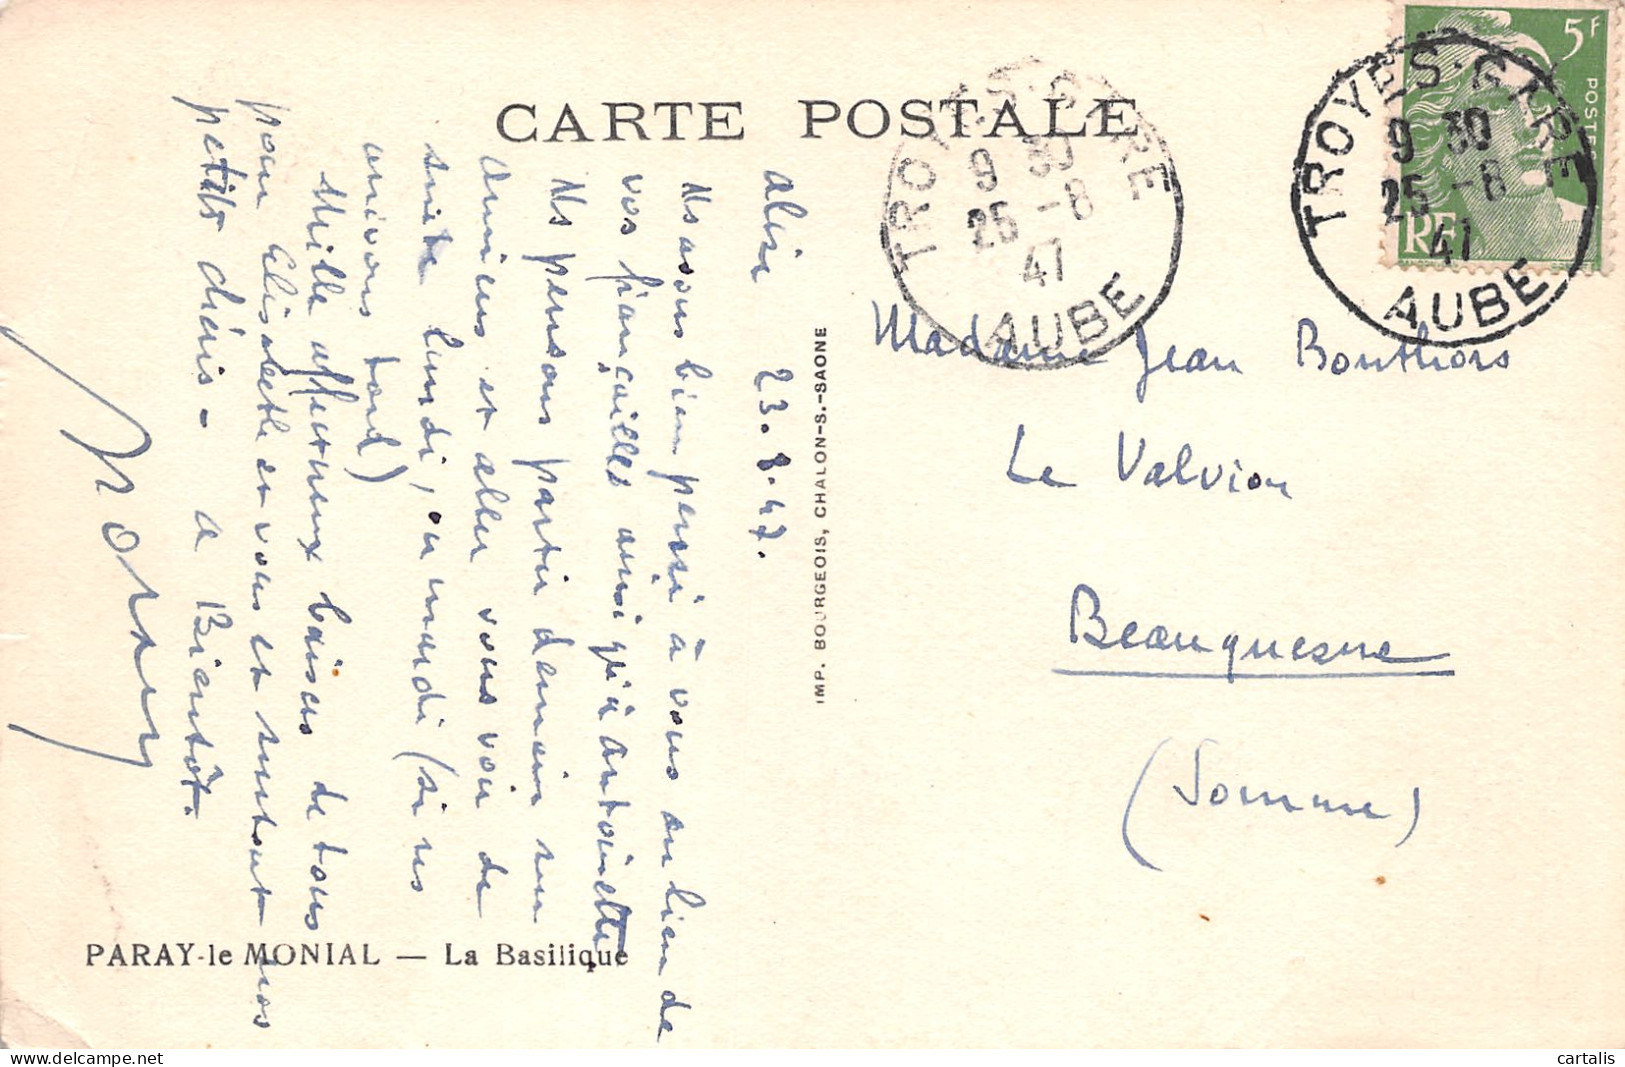 CARTE POSTALE
5F
POSTES
RF
TROYES-GARE
9 30
25 -8
47
AUBE
TROYES-GARE
9 30
25 -8
47
AUBE
23.8.47.
Ns avons bien pensé à vous au lieu de
vos fiançailles ainsi qu'à Antoinette
Ns pensons partir demain sur
Amiens et aller vous voir de
suite lundi, ou mardi (si ns
arrivons tard)
Mille affectueux baisers de tous
pour Elisabeth et vous et surtout nos
petits chéris - à Bientôt.
Madame Jean Bouthors
Le Valvion
Beauquesne
(Somme)
IMP. BOURGEOIS, CHALON-S.-SAONE
PARAY-le MONIAL — La Basilique
cartalis